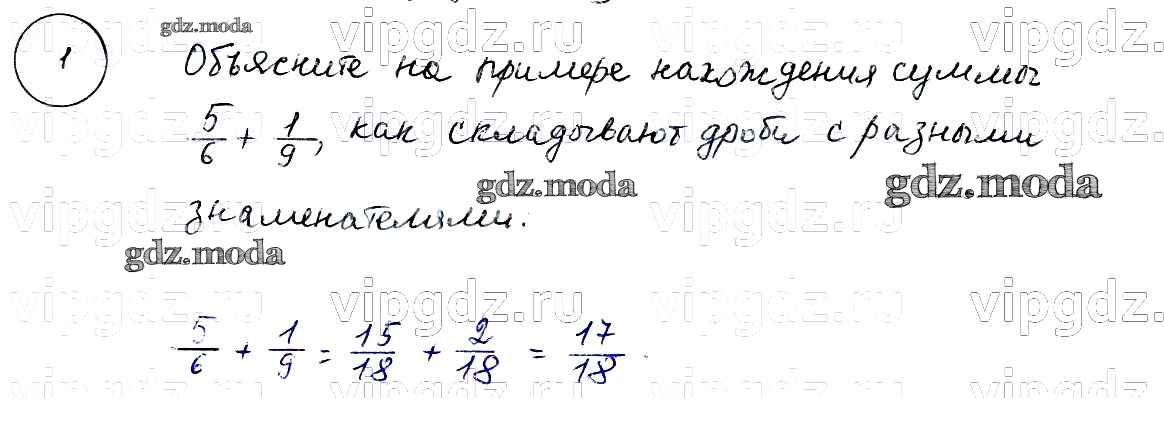 gdz.moda
vipgdz.ru vipgdz.ru vipgdz.
1 Объясните на примере нахождения суммы
5/6 + 1/9, как складывают дроби с разными
vipgdz.ru vipgdz.ru vipgdz.
gdz.moda gdz.moda
знаменателями.
vipgdz.ru vipgdz.ru vipgdz.
gdz.moda
vipgdz.ru vipgdz.ru vipgdz.
5/6 + 1/9 = 15/18 + 2/18 = 17/18.